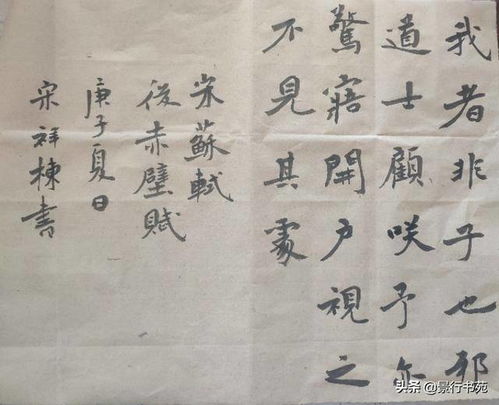 我者非子也邪
道士顧咲予亦
驚寤開户視之
不見其處
宋蘇軾
後赤壁賦
庚子夏日
宋祥棟書
头条 @景行书苑